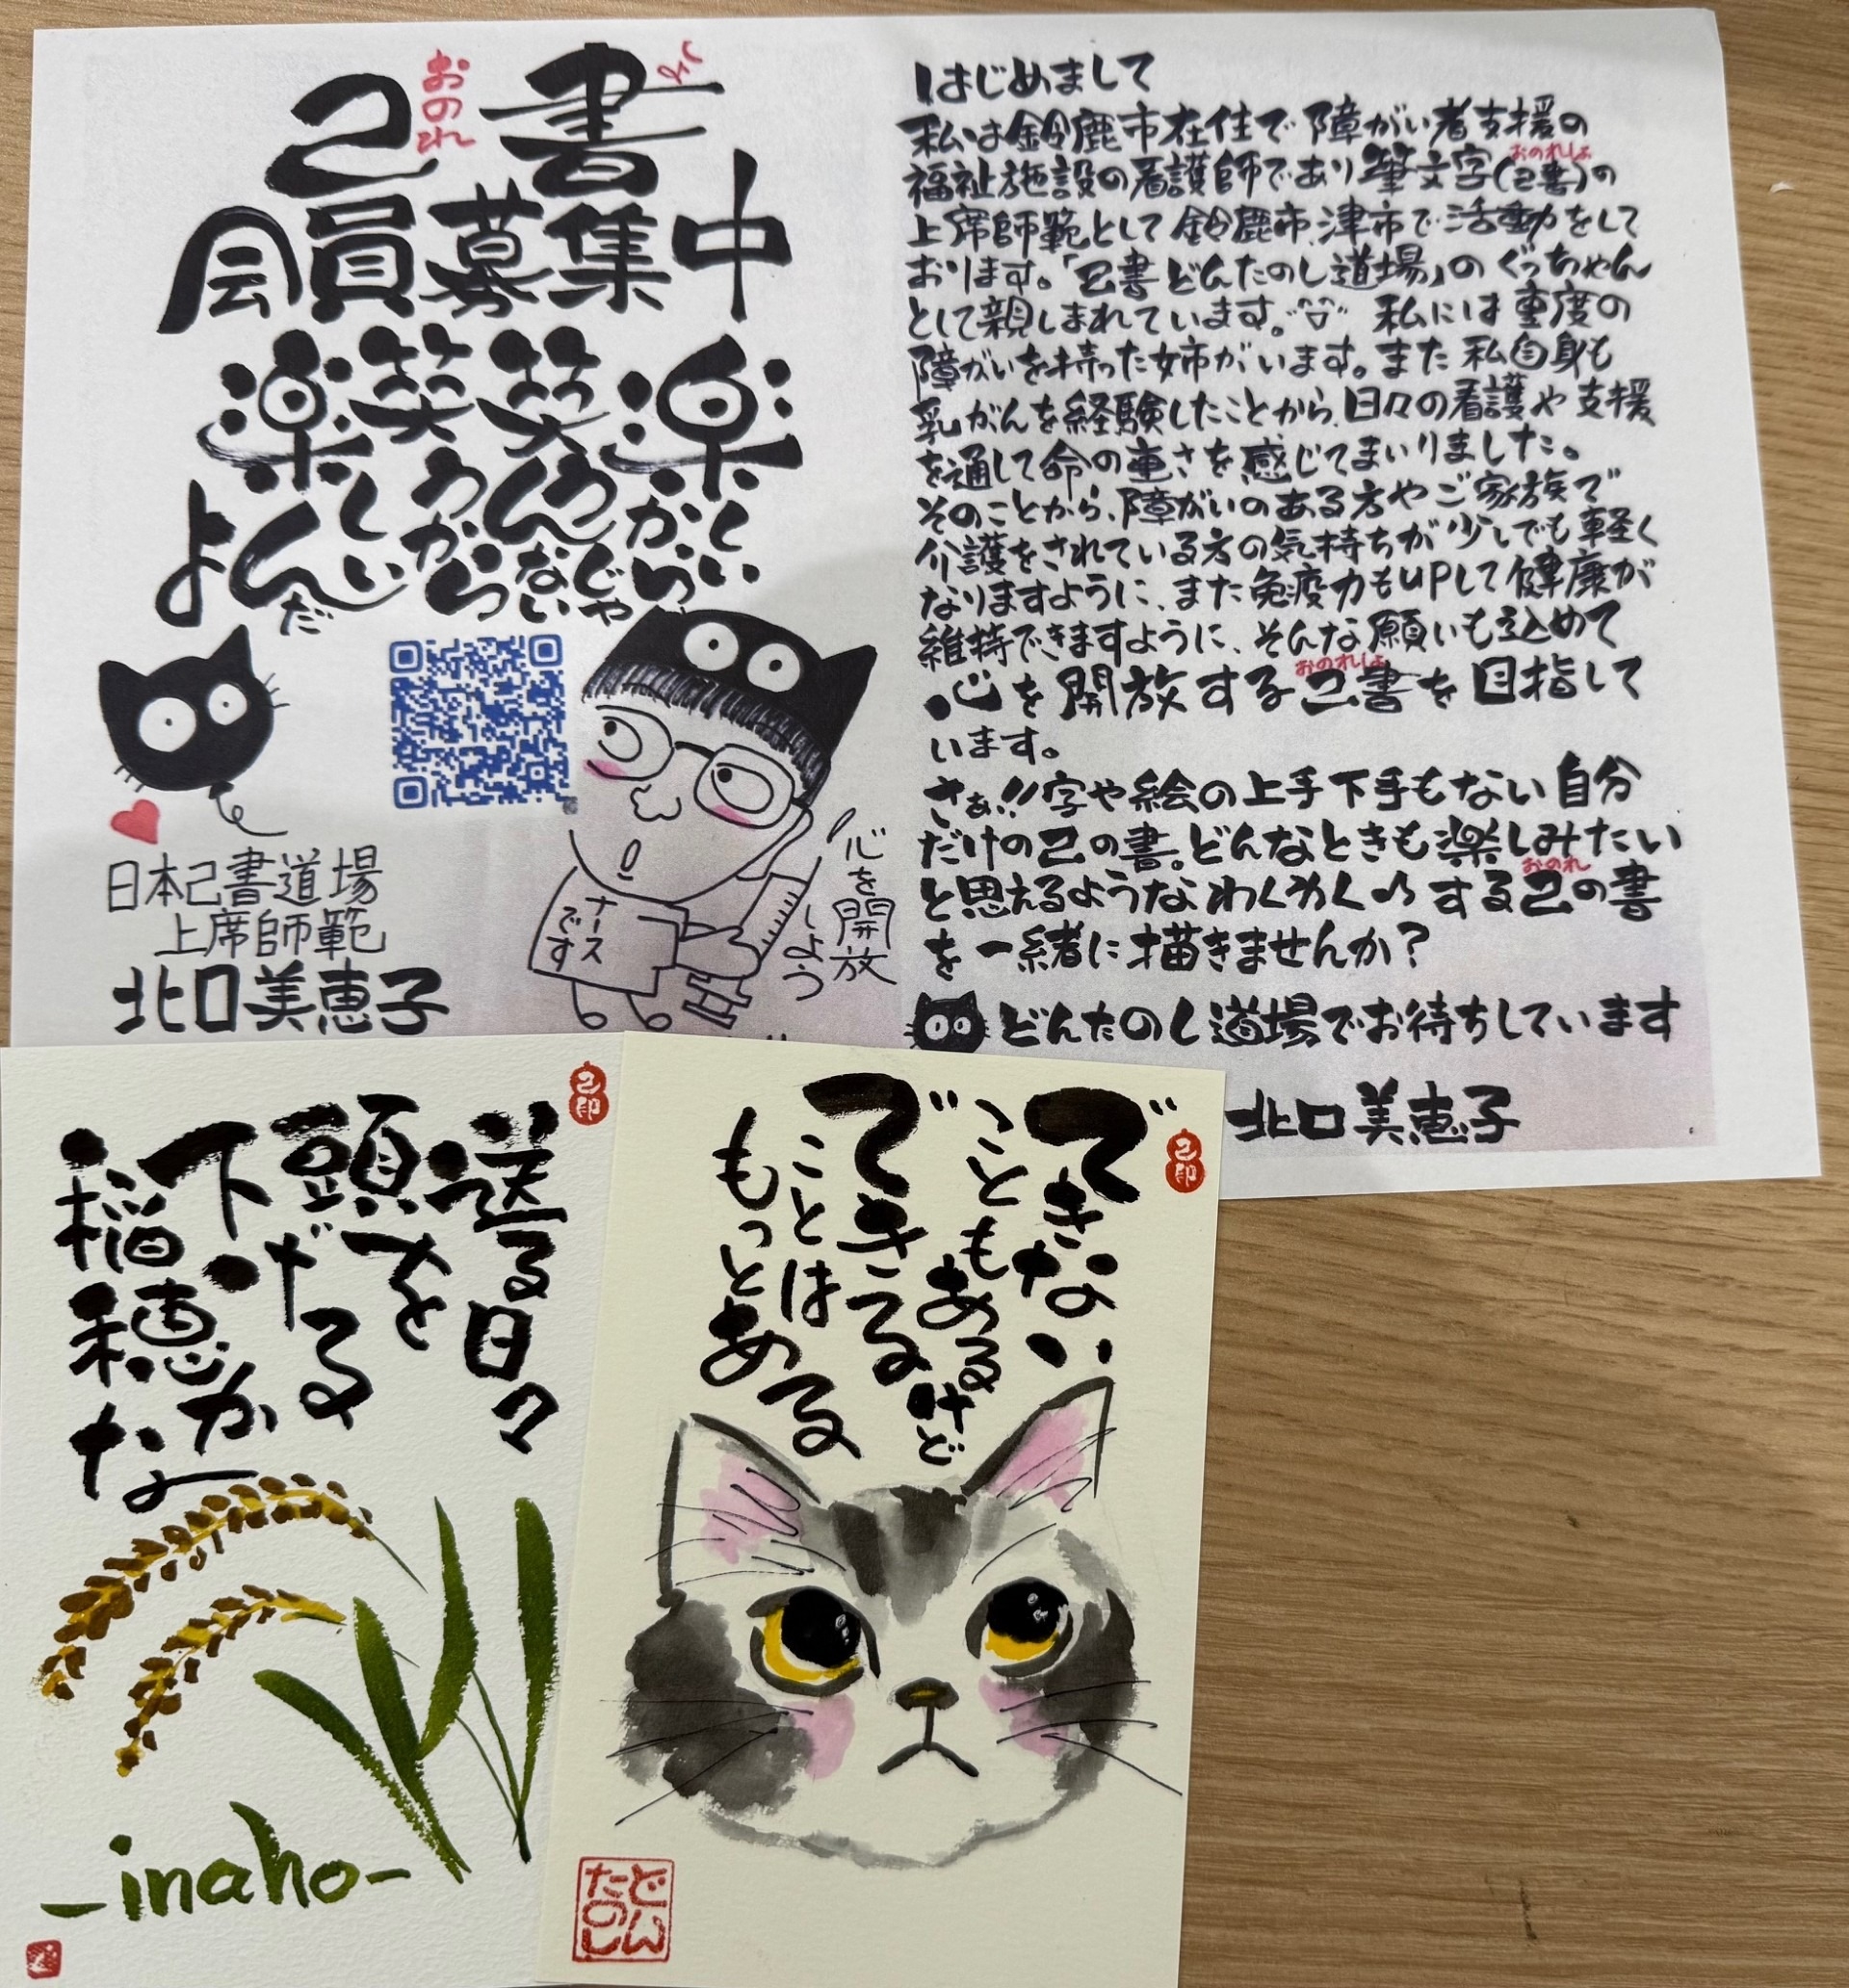 己書
おのれ
しょ
会員募集中
楽しいから
笑うんじゃない
笑うから
楽しいんだよ
日本己書道場
上席師範
北口美恵子
ナース
です
心を開放
しよう
はじめまして
私は鈴鹿市在住で障がい者支援の
おのれしょ
福祉施設の看護師であり筆文字(己書)の
上席師範として鈴鹿市、津市で活動をして
おります。「己書どんたのし道場」のぐっちゃん
として親しまれています。私には重度の
障がいを持った姉がいます。また私自身も
乳がんを経験したことから、日々の看護や支援
を通して命の重さを感じてまいりました。
そのことから、障がいのある方やご家族で
介護をされている方の気持ちが少しでも軽く
なりますように、また免疫力もUPして健康が
維持できますように、そんな願いも込めて
おのれしょ
心を開放する己書を目指して
います。
さぁ!!字や絵の上手下手もない自分
だけの己の書。どんなときも楽しみたい
おのれ
と思えるようなわくわく♪する己の書
を一緒に描きませんか?
どんたのし道場でお待ちしています
北口美恵子
己印
送る日々
頭を
下げる
稲穂かな
-inaho-
己印
できない
こともあるけど
できる
ことは
もっとある
どん
たのし